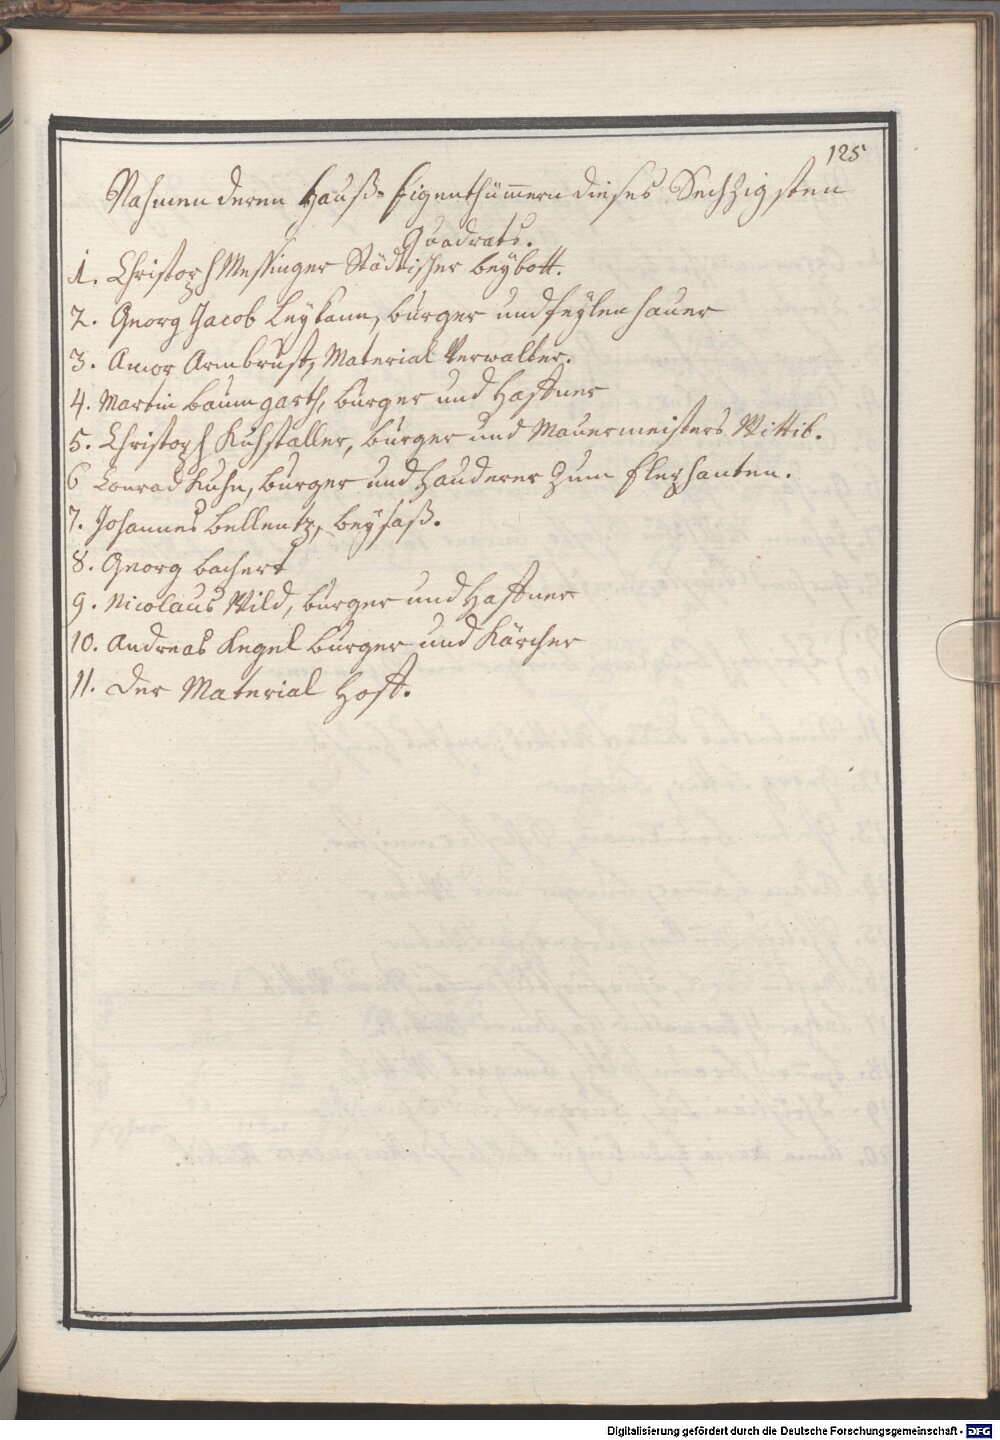 125
Nahmen deren Hauß-Eigenthümern dieses Sechzigsten
Quadrats.
1. Christoph Messinger Städtischer beybott.
2. Georg Jacob Leykam, bürger und feylenhauer
3. Amor Armbrust, Material Verwalter.
4. Martin baumgarth, bürger und Haffner
5. Christoph Kuhstaller, bürger und Mauermeisters Wittib.
6 Conrad Kuhn, bürger und Hauderer zum Elephanten.
7. Johannes Bellentz, beysaß.
8. Georg bachert
9. Nicolaus Wild, bürger und Haffner
10. Andreas Kegel bürger und Kärcher
11. Der Material Hoff.
Digitalisierung gefördert durch die Deutsche Forschungsgemeinschaft - DFG